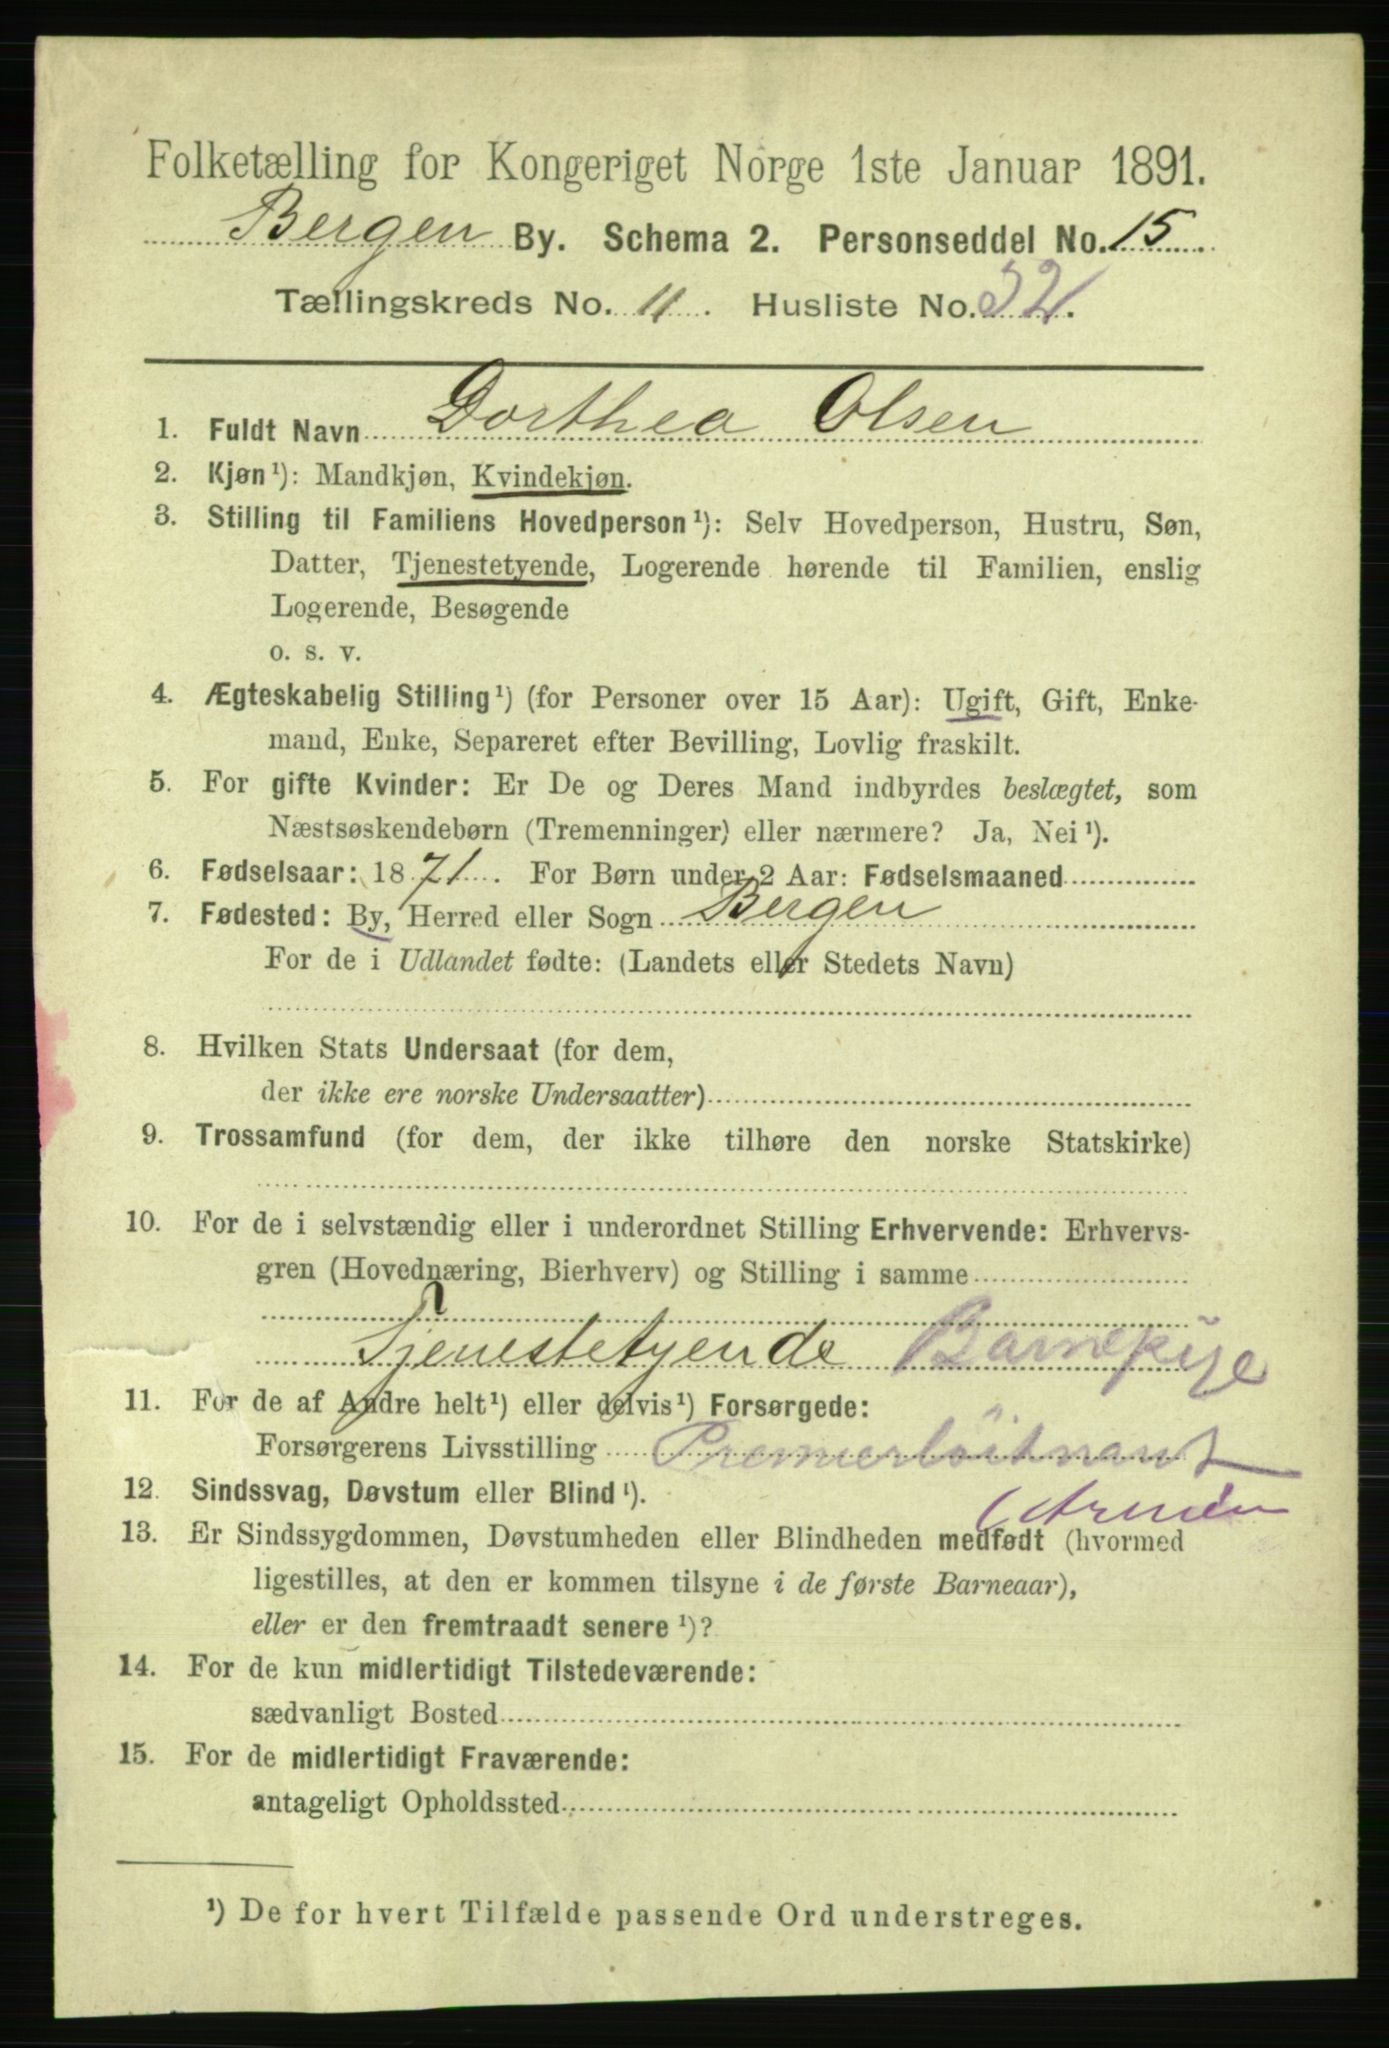 Folketælling for Kongeriget Norge 1ste Januar 1891.
Bergen By. Schema 2. Personseddel No. 15.
Tællingskreds No. 11. Husliste No. 32.
1. Fuldt Navn Dorthea Olsen
2. Kjøn¹): Mandkjøn, Kvindekjøn.
3. Stilling til Familiens Hovedperson¹): Selv Hovedperson, Hustru, Søn,
Datter, Tjenestetyende, Logerende hørende til Familien, enslig
Logerende, Besøgende
o. s. v.
4. Ægteskabelig Stilling¹) (for Personer over 15 Aar): Ugift, Gift, Enke-
mand, Enke, Separeret efter Bevilling, Lovlig fraskilt.
5. For gifte Kvinder: Er De og Deres Mand indbyrdes beslægtet, som
Næstsøskendebørn (Tremenninger) eller nærmere? Ja, Nei¹).
6. Fødselsaar: 1871. For Børn under 2 Aar: Fødselsmaaned
7. Fødested: By, Herred eller Sogn Bergen
For de i Udlandet fødte: (Landets eller Stedets Navn)
8. Hvilken Stats Undersaat (for dem,
der ikke ere norske Undersaatter)
9. Trossamfund (for dem, der ikke tilhøre den norske Statskirke)
10. For de i selvstændig eller i underordnet Stilling Erhvervende: Erhvervs-
gren (Hovednæring, Bierhverv) og Stilling i samme
Tjenestetyende Barnepige
11. For de af Andre helt¹) eller delvis¹) Forsørgede:
Forsørgerens Livsstilling Premierlöitnant
12. Sindssvag, Døvstum eller Blind¹).
(Armeen
13. Er Sindssygdommen, Døvstumheden eller Blindheden medfødt (hvormed
ligestilles, at den er kommen tilsyne i de første Barneaar),
eller er den fremtraadt senere¹)?
14. For de kun midlertidigt Tilstedeværende:
sædvanligt Bosted
15. For de midlertidigt Fraværende:
antageligt Opholdssted
¹) De for hvert Tilfælde passende Ord understreges.